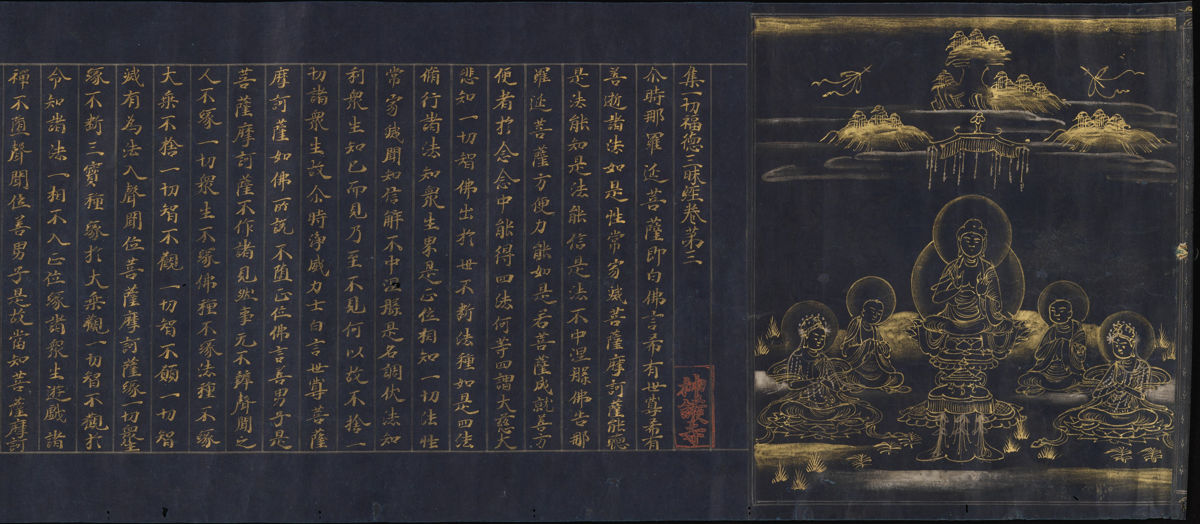 集一切福德三昧經卷第三
尒時那羅延菩薩即白佛言希有世尊希有
善逝諸法如是性常寂滅菩薩摩訶薩能聽
是法能知是法能信是法不中涅槃佛告那
羅延菩薩方便力能如是若菩薩成就善方
便者於念念中能得四法何等四謂大慈大
悲知一切智佛出於世不斷法種如是四法
脩行諸法知衆生界是正位相知一切法性
常寂滅聞知信解不中涅槃是名調伏法知
利衆生知已而見乃至不見何以故不捨一
切諸衆生故尒時淨威力士白言世尊菩薩
摩訶薩如佛所說不墮正位佛言善男子是
菩薩摩訶薩不作諸見然事元不辭聲聞之
人不緣一切衆生不緣佛種不緣法種不緣
大乘不捨一切智不觀一切智不願一切智
滅有為法入聲聞位菩薩摩訶薩緣一切衆生
緣不斷三寶種緣於大乘觀一切智不觀於
今知諸法一相不入正位緣諸衆生遊戲諸
禪不墮聲聞位善男子是故當知菩薩摩訶
神護寺